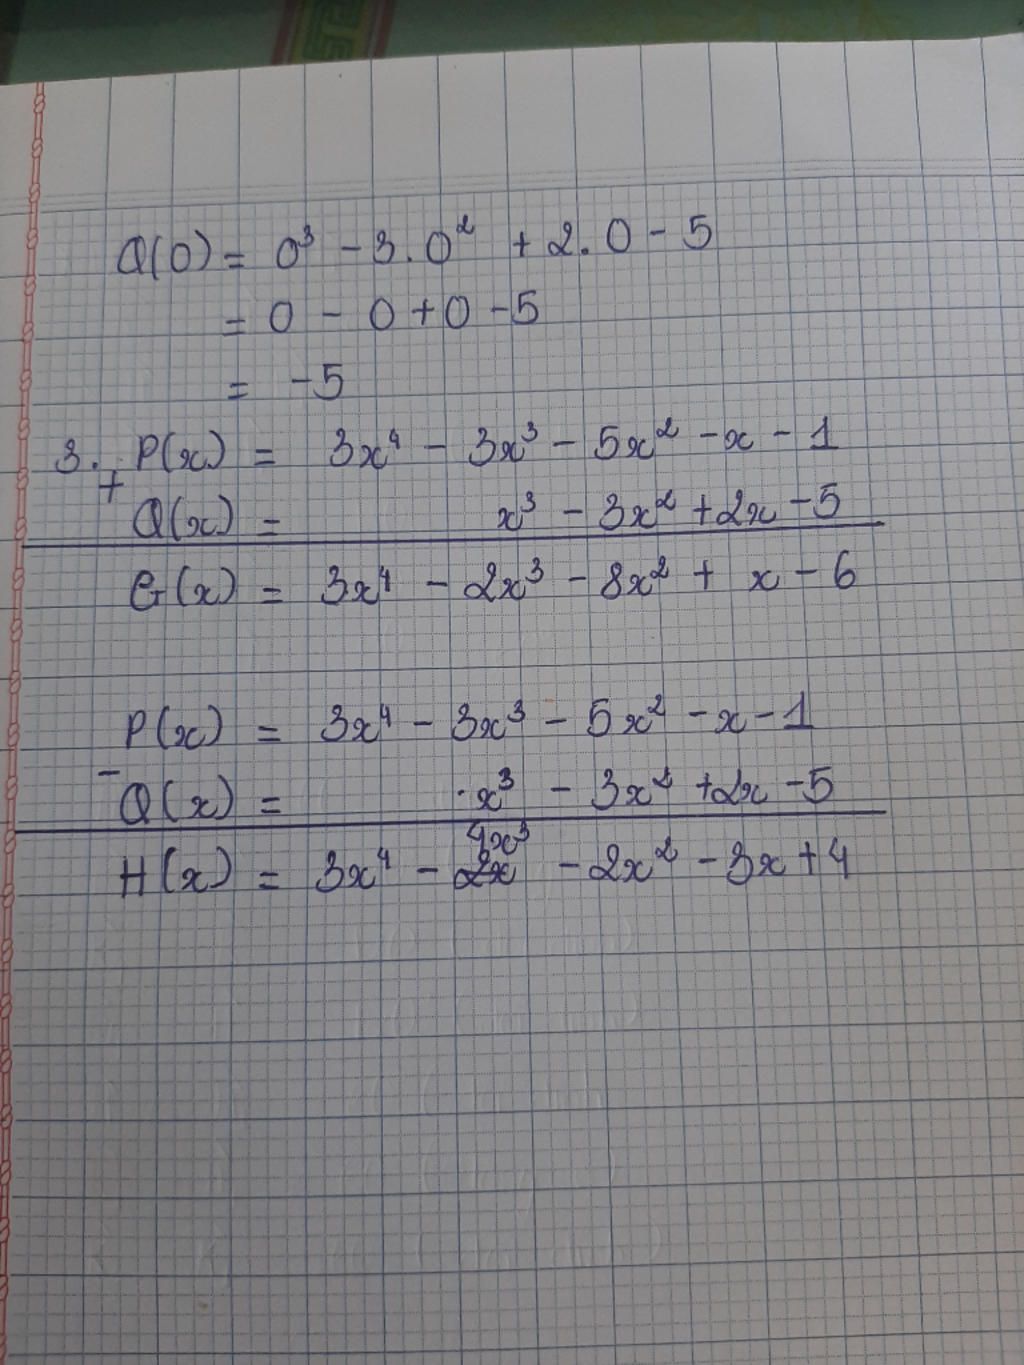 Q(0) = 0³ - 3.0² + 2.0 - 5
= 0 - 0 + 0 - 5
= -5
3. P(x) = 3x⁴ - 3x³ - 5x² - x - 1
+
Q(x) = x³ - 3x² + 2x - 5
G(x) = 3x⁴ - 2x³ - 8x² + x - 6
P(x) = 3x⁴ - 3x³ - 5x² - x - 1
-
Q(x) = x³ - 3x² + 2x - 5
4x³
H(x) = 3x⁴ - 2x - 2x² - 3x + 4